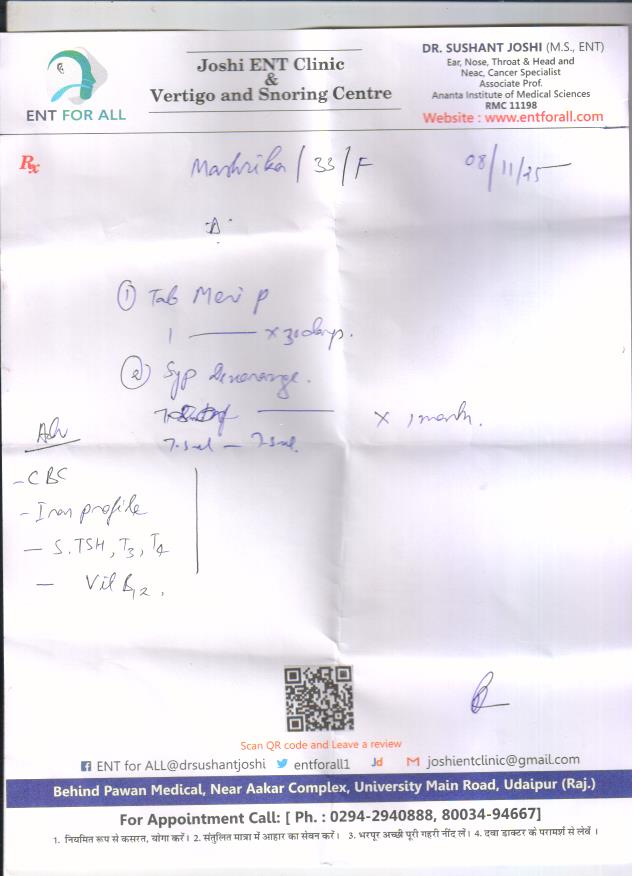 ENT FOR ALL
Joshi ENT Clinic
&
Vertigo and Snoring Centre
DR. SUSHANT JOSHI (M.S., ENT)
Ear, Nose, Throat & Head and
Neac, Cancer Specialist
Associate Prof.
Ananta Institute of Medical Sciences
RMC 11198
Website : www.entforall.com
Rx
Mashrika / 33 / F
08/11/25
① Tab Meri P
1 —— x 30 days.
② Syp
7.5ml — 7.5ml
x 1 month.
Adv
- CBC
- Iron profile
- S. TSH, T3, T4
- Vit B12.
Scan QR code and Leave a review
ENT for ALL@drsushantjoshi entforall1 Jd joshientclinic@gmail.com
Behind Pawan Medical, Near Aakar Complex, University Main Road, Udaipur (Raj.)
For Appointment Call: [ Ph. : 0294-2940888, 80034-94667]
1. नियमित रूप से कसरत, योगा करें। 2. संतुलित मात्रा में आहार का सेवन करें। 3. भरपूर अच्छी पूरी गहरी नींद लें। 4. दवा डाक्टर के परामर्श से लेवें ।